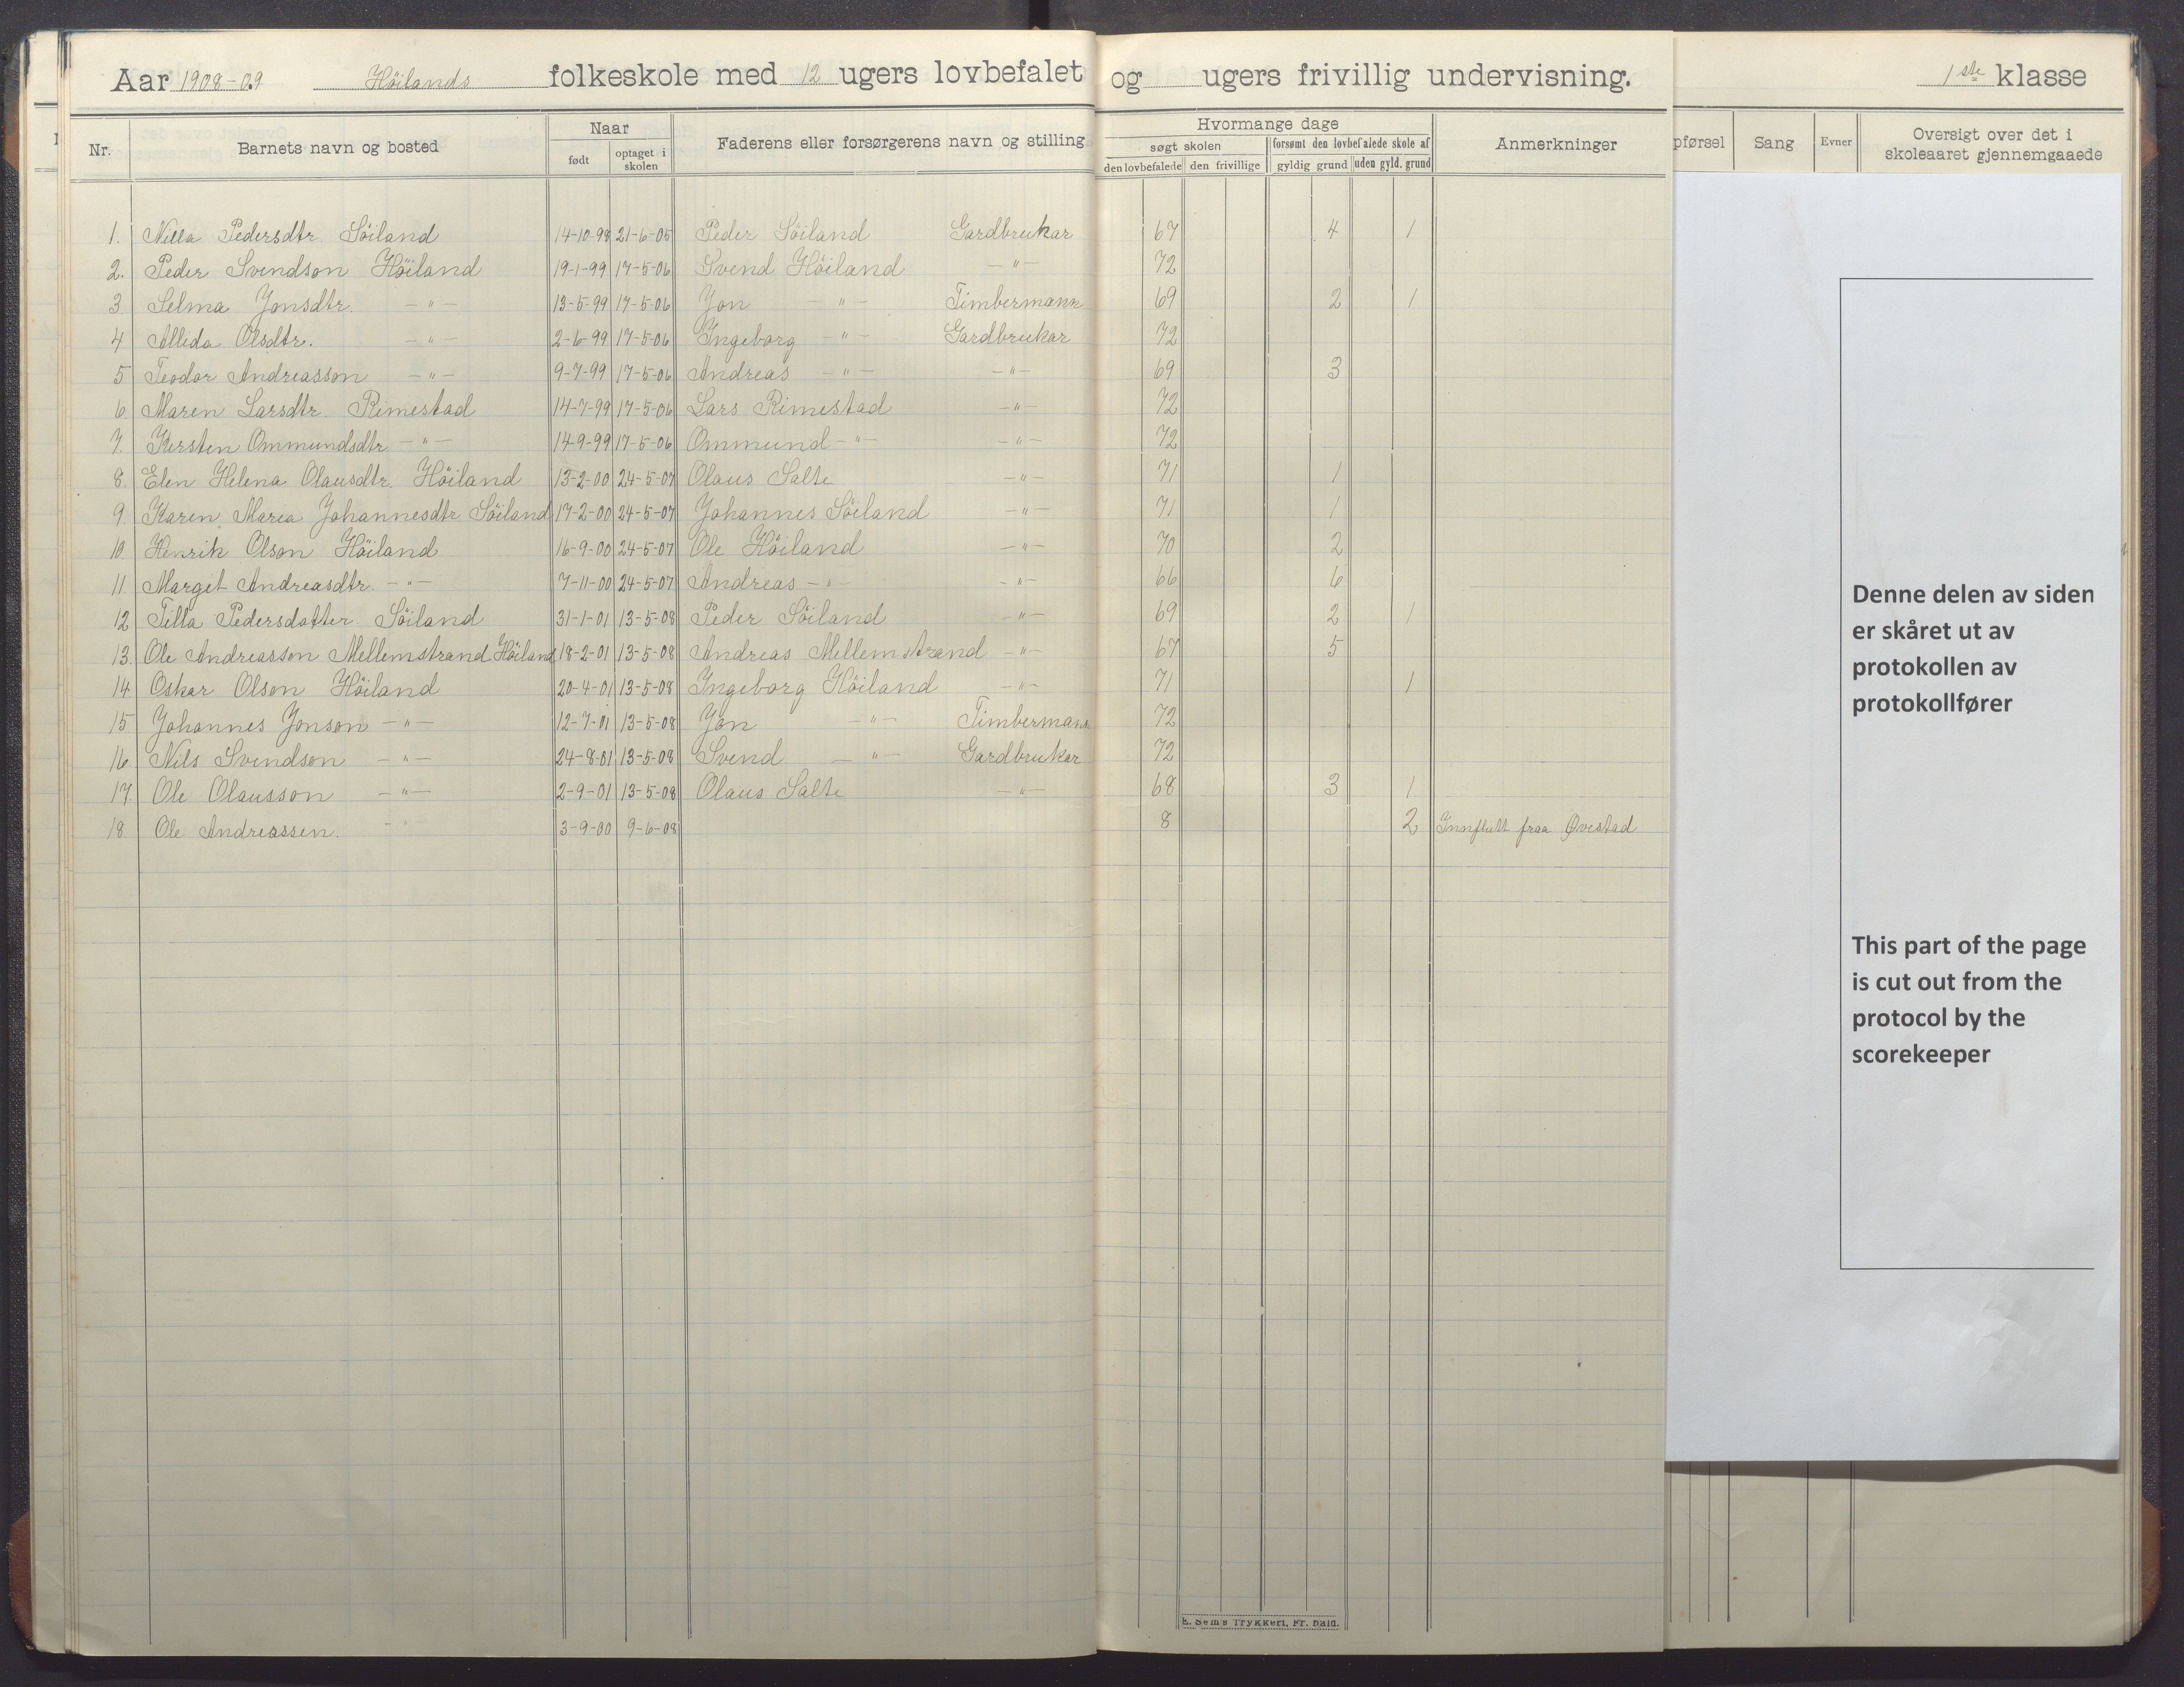 Aar 1908-09 Höilands folkeskole med 12 ugers lovbefalet og ugers frivillig undervisning. 1ste klasse
Nr. Barnets navn og bosted Naar Faderens eller forsørgerens navn og stilling Hvormange dage Anmerkninger pførsel Sang Evner Oversigt over det i skoleaaret gjennemgaaede
født optaget i skolen søgt skolen forsømt den lovbefalede skole af
den lovbefalede den frivillige gyldig grund uden gyld. grund
1. Nilla Pedersdtr. Söiland 14-10-98 21-6-05 Peder Söiland Gardbrukar 67 4 1
2. Peder Svendson Höiland 19-1-99 17-5-06 Svend Höiland -"- 72
3 Selma Jonsdtr. -"- 13-5-99 17-5-06 Jon -"- Timbermann 69 2 1
4 Allida Olsdtr. -"- 2-6-99 17-5-06 Ingeborg -"- Gardbrukar 72
5 Teodor Andreasson -"- 9-7-99 17-5-06 Andreas -"- -"- 69 3
6 Maren Larsdtr. Rimestad 14-7-99 17-5-06 Lars Rimestad -"- 72
7. Kersten Ommundsdtr -"- 14-9-99 17-5-06 Ommund -"- -"- 72
8. Elen Helena Olausdtr. Höiland 13-2-00 24-5-07 Olaus Salte -"- 71 1
9. Karen Maria Johannesdtr Söiland 17-2-00 24-5-07 Johannes Söiland -"- 71 1
10. Henrik Olson Höiland 16-9-00 24-5-07 Ole Höiland -"- 70 2
11. Marget Andreasdtr. -"- 7-11-00 24-5-07 Andreas -"- -"- 66 6
12 Tilla Pedersdatter Söiland 31-1-01 13-5-08 Peder Söiland -"- 69 2 1
13. Ole Andreasson Mellemstrand Höiland 18-2-01 13-5-08 Andreas Mellemstrand -"- 67 5
14 Oskar Olson Höiland 20-4-01 13-5-08 Ingeborg Höiland -"- 71 1
15 Johannes Jonson -"- 12-7-01 13-5-08 Jon -"- Timbermann 72
16 Nils Svendson -"- 24-8-01 13-5-08 Svend -"- Gardbrukar 72
17 Ole Olausson -"- 2-9-01 13-5-08 Olaus Salte -"- 68 3 1
18 Ole Andreassen. -"- 3-9-00 9-6-08 8 2 Innflutt fraa Øvestad
E. Sem's Trykkeri, Fr. hald.
Denne delen av siden
er skåret ut av
protokollen av
protokollfører
This part of the page
is cut out from the
protocol by the
scorekeeper